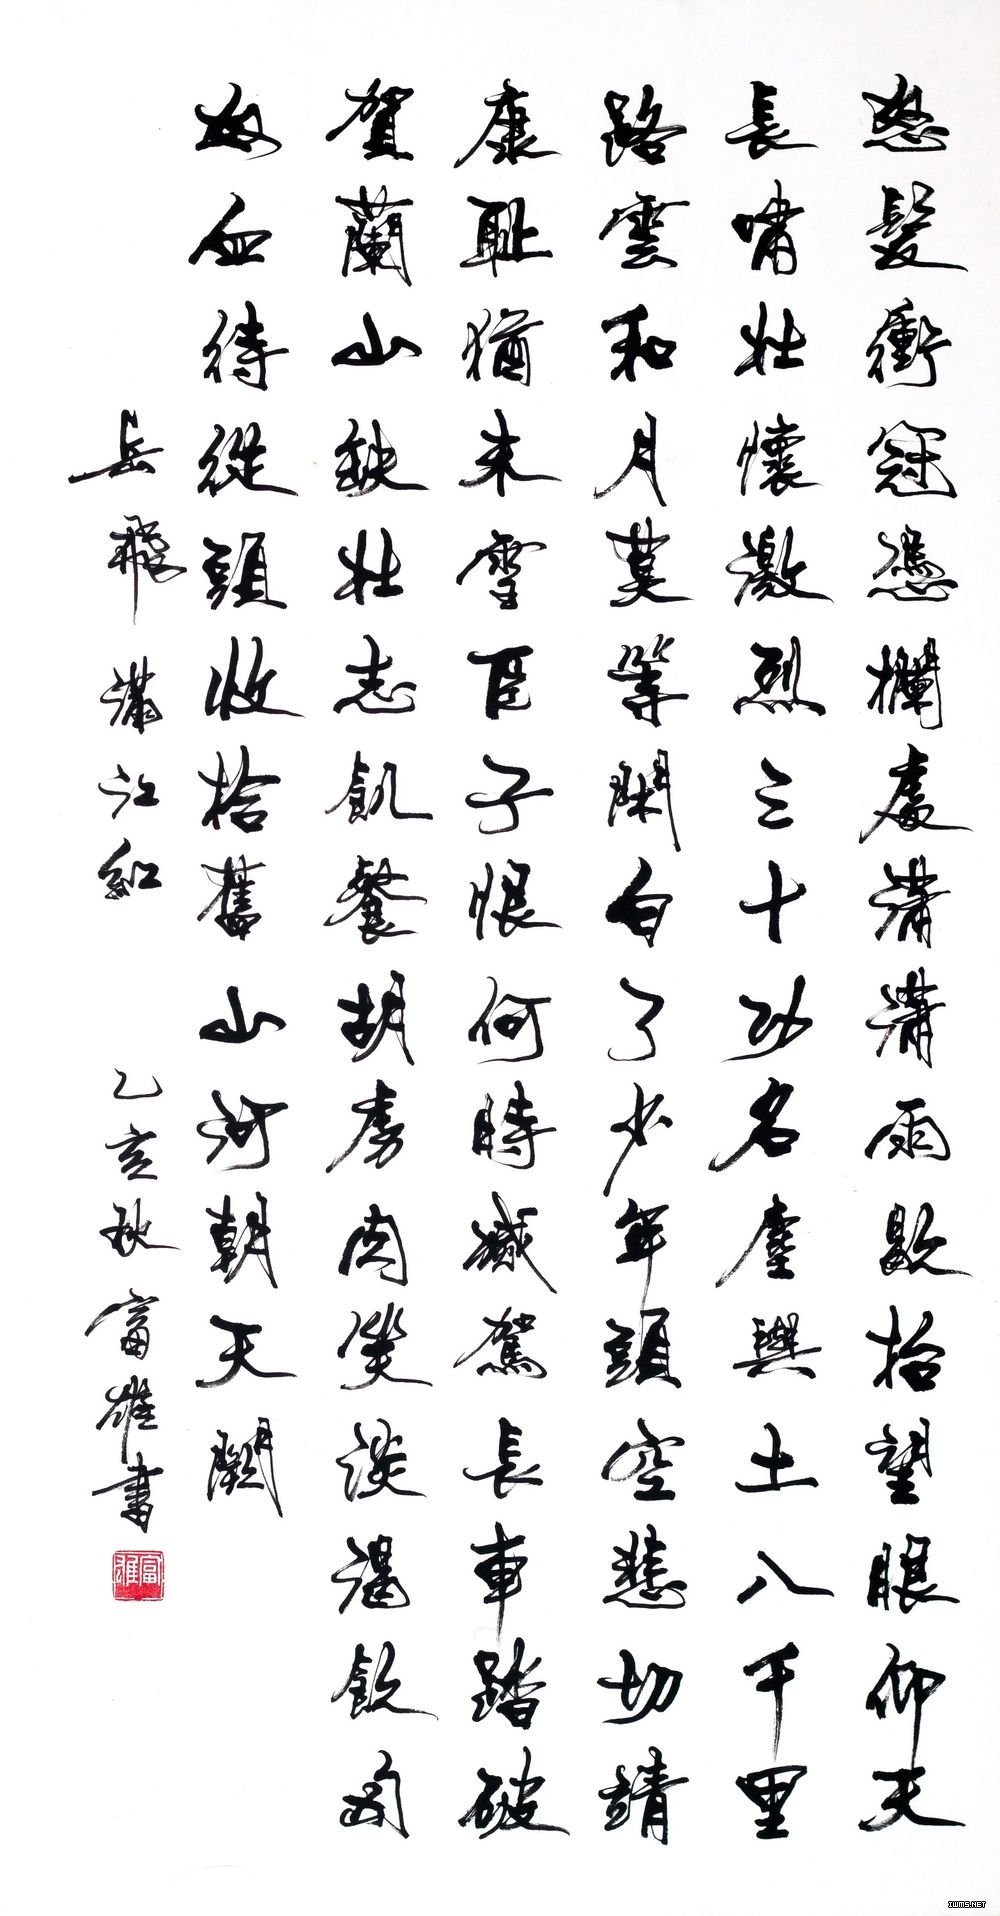 怒髮衝冠憑欄處瀟瀟雨歇抬望眼仰天
長嘯壯懷激烈三十功名塵與土八千里
路雲和月莫等閑白了少年頭空悲切靖
康耻猶未雪臣子恨何時憾駕長車踏破
賀蘭山缺壯志飢餐胡虜肉笑談渴飲匈
奴血待從頭收拾舊山河朝天闕
岳飛 滿江紅 乙亥秋 富雄書
富雄
IWMS.NET